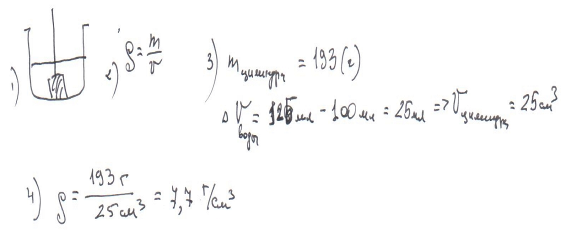 1)
2) ρ = m/v
3) m цилиндр = 193 (г)
Δ V воды = 125 мл - 100 мл = 25 мл => V цилиндр = 25 см³
4) ρ = 193 г / 25 см³ = 7,7 г/см³